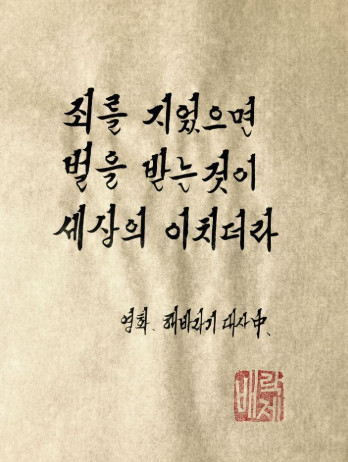 죄를 지었으면
벌을 받는것이
세상의 이치더라
영화. 해바라기 대사中.